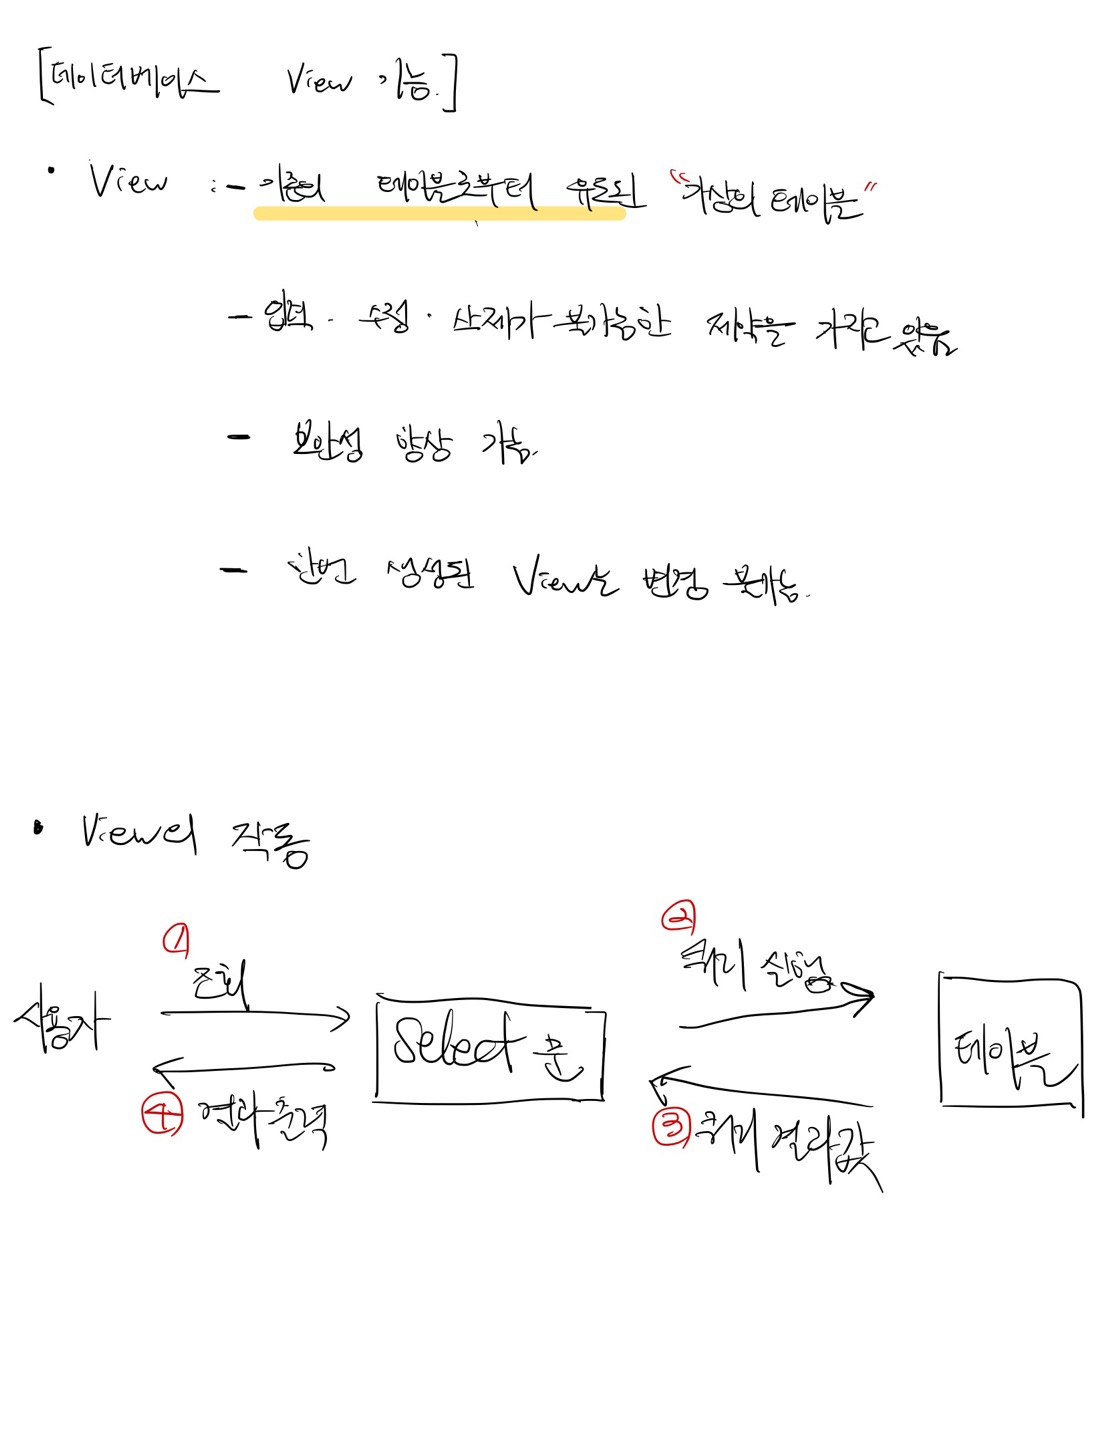 [데이터베이스 View 기능.]
· View :- 기존의 테이블로부터 유도된 "가상의 테이블"
- 입력 · 수정 · 삭제가 불가능한 제약을 가지고 있음
- 보안성 향상 가능.
- 한번 생성된 View는 변경 불가능.
· View의 작동
① 조회
② 쿼리 실행
사용자
Select 문
테이블
④ 결과출력
③ 쿼리 결과값